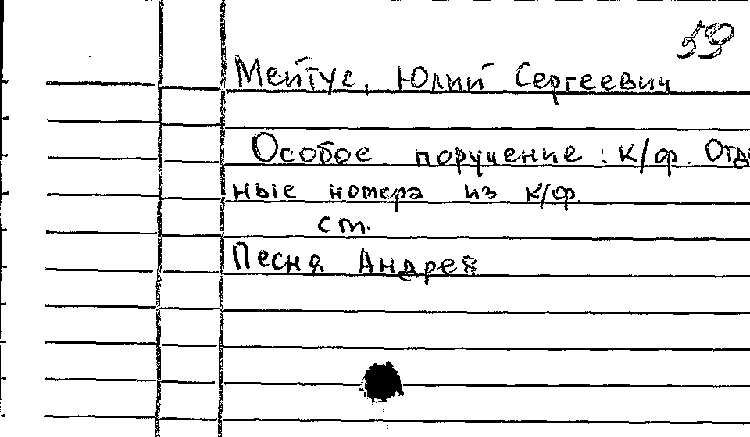 59
Мейтус, Юлий Сергеевич
Особое поручение: к/ф. Отд
ные номера из к/ф.
ст.
Песня Андрея